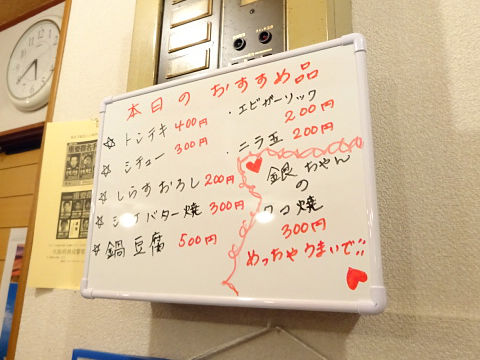 本日のおすすめ品
☆ トンテキ 400円
シチュー 300円
☆ しらすおろし 200円
☆ シイバター焼 300円
☆ 鍋豆腐 500円
・エビガーリック
200円
・ニラ玉 200円
銀ちゃん
の
タコ焼
300円
めっちゃうまいで!!